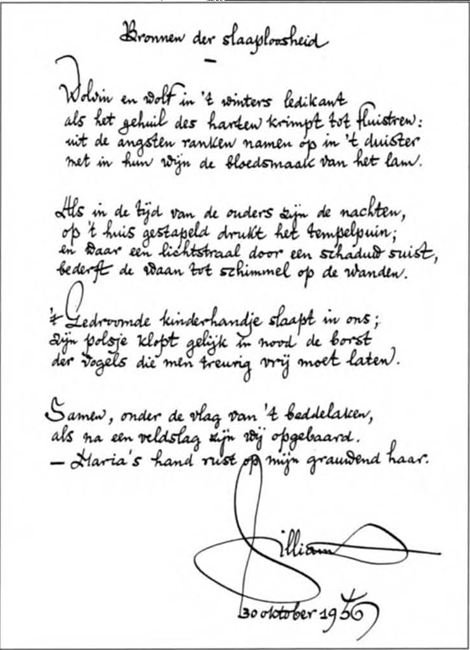 Bronnen der slaaploosheid
Wolvin en wolf in 't winters ledikant
als het gehuil des harten krimpt tot fluistren:
uit de angsten ranken namen op in 't duister
met in hun wijn de bloedsmaak van het lam.
Als in de tijd van de ouders zijn de nachten,
op 't huis gestapeld drukt het tempelpuin;
en waar een lichtstraal door een schaduw suist,
bederft de waan tot schimmel op de wanden.
't Gedroomde kinderhandje slaapt in ons;
zijn polsje klopt gelijk in nood de borst
der vogels die men treurig vrij moet laten.
Samen, onder de vlag van 't beddelaken,
als na een veldslag zijn wij opgebaard.
— Maria's hand rust op mijn grauwend haar.
Jilliam
30 oktober 1956